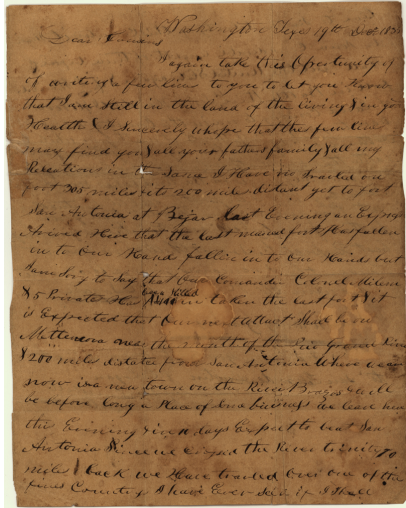 Washington Texas 19th Dec 183
Dear Cousins
I again take this Opertunity of
of writing a few lines to you to let you Know
that I am Still in the land of the living & in good
Health & I Sincerely whope that the few lines
may find you & all your fathers family & all my
Relations in the Same I Have traveled on
foot 305 miles its 200 miles distant yet to fort
San Antonia at Bejar last Evening an Express
Arived Here that the last mexican fort Has fallen
in to Our Hand but
Sam Sorry to Say that Our Comander Colonel Milum
& 5 Privates Has been killed in taken the last fort & it
is Expected that Our next attact Shall be on
Mettemoras near the mouth of the
& 200 miles distance from San Antonia Where we are
now is a new town on the River Brasos & will
be before long a Place of business We leave here
this Evening & in days Expect to
Antonia Since we crossed the River trinity 70
miles back we Have traveled Over one of the
fines Countrys I have Ever Seen if I Shall